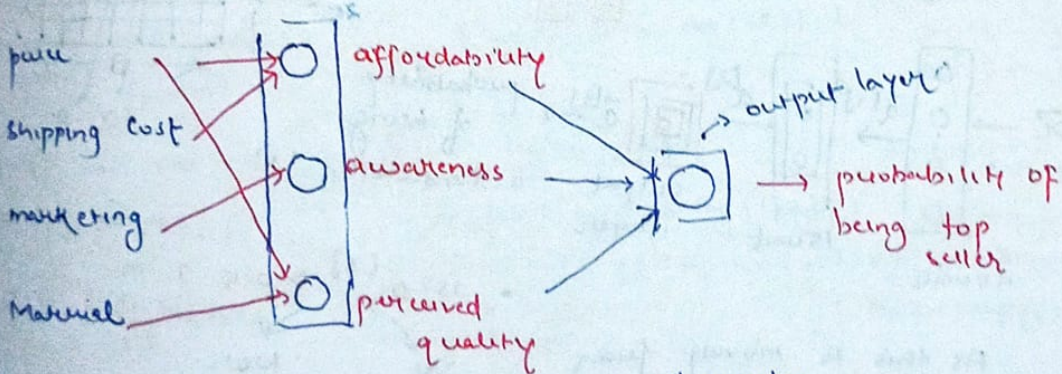 price
shipping cost
marketing
Material
affordability
awareness
perceived
quality
output layer
probability of
being top
seller